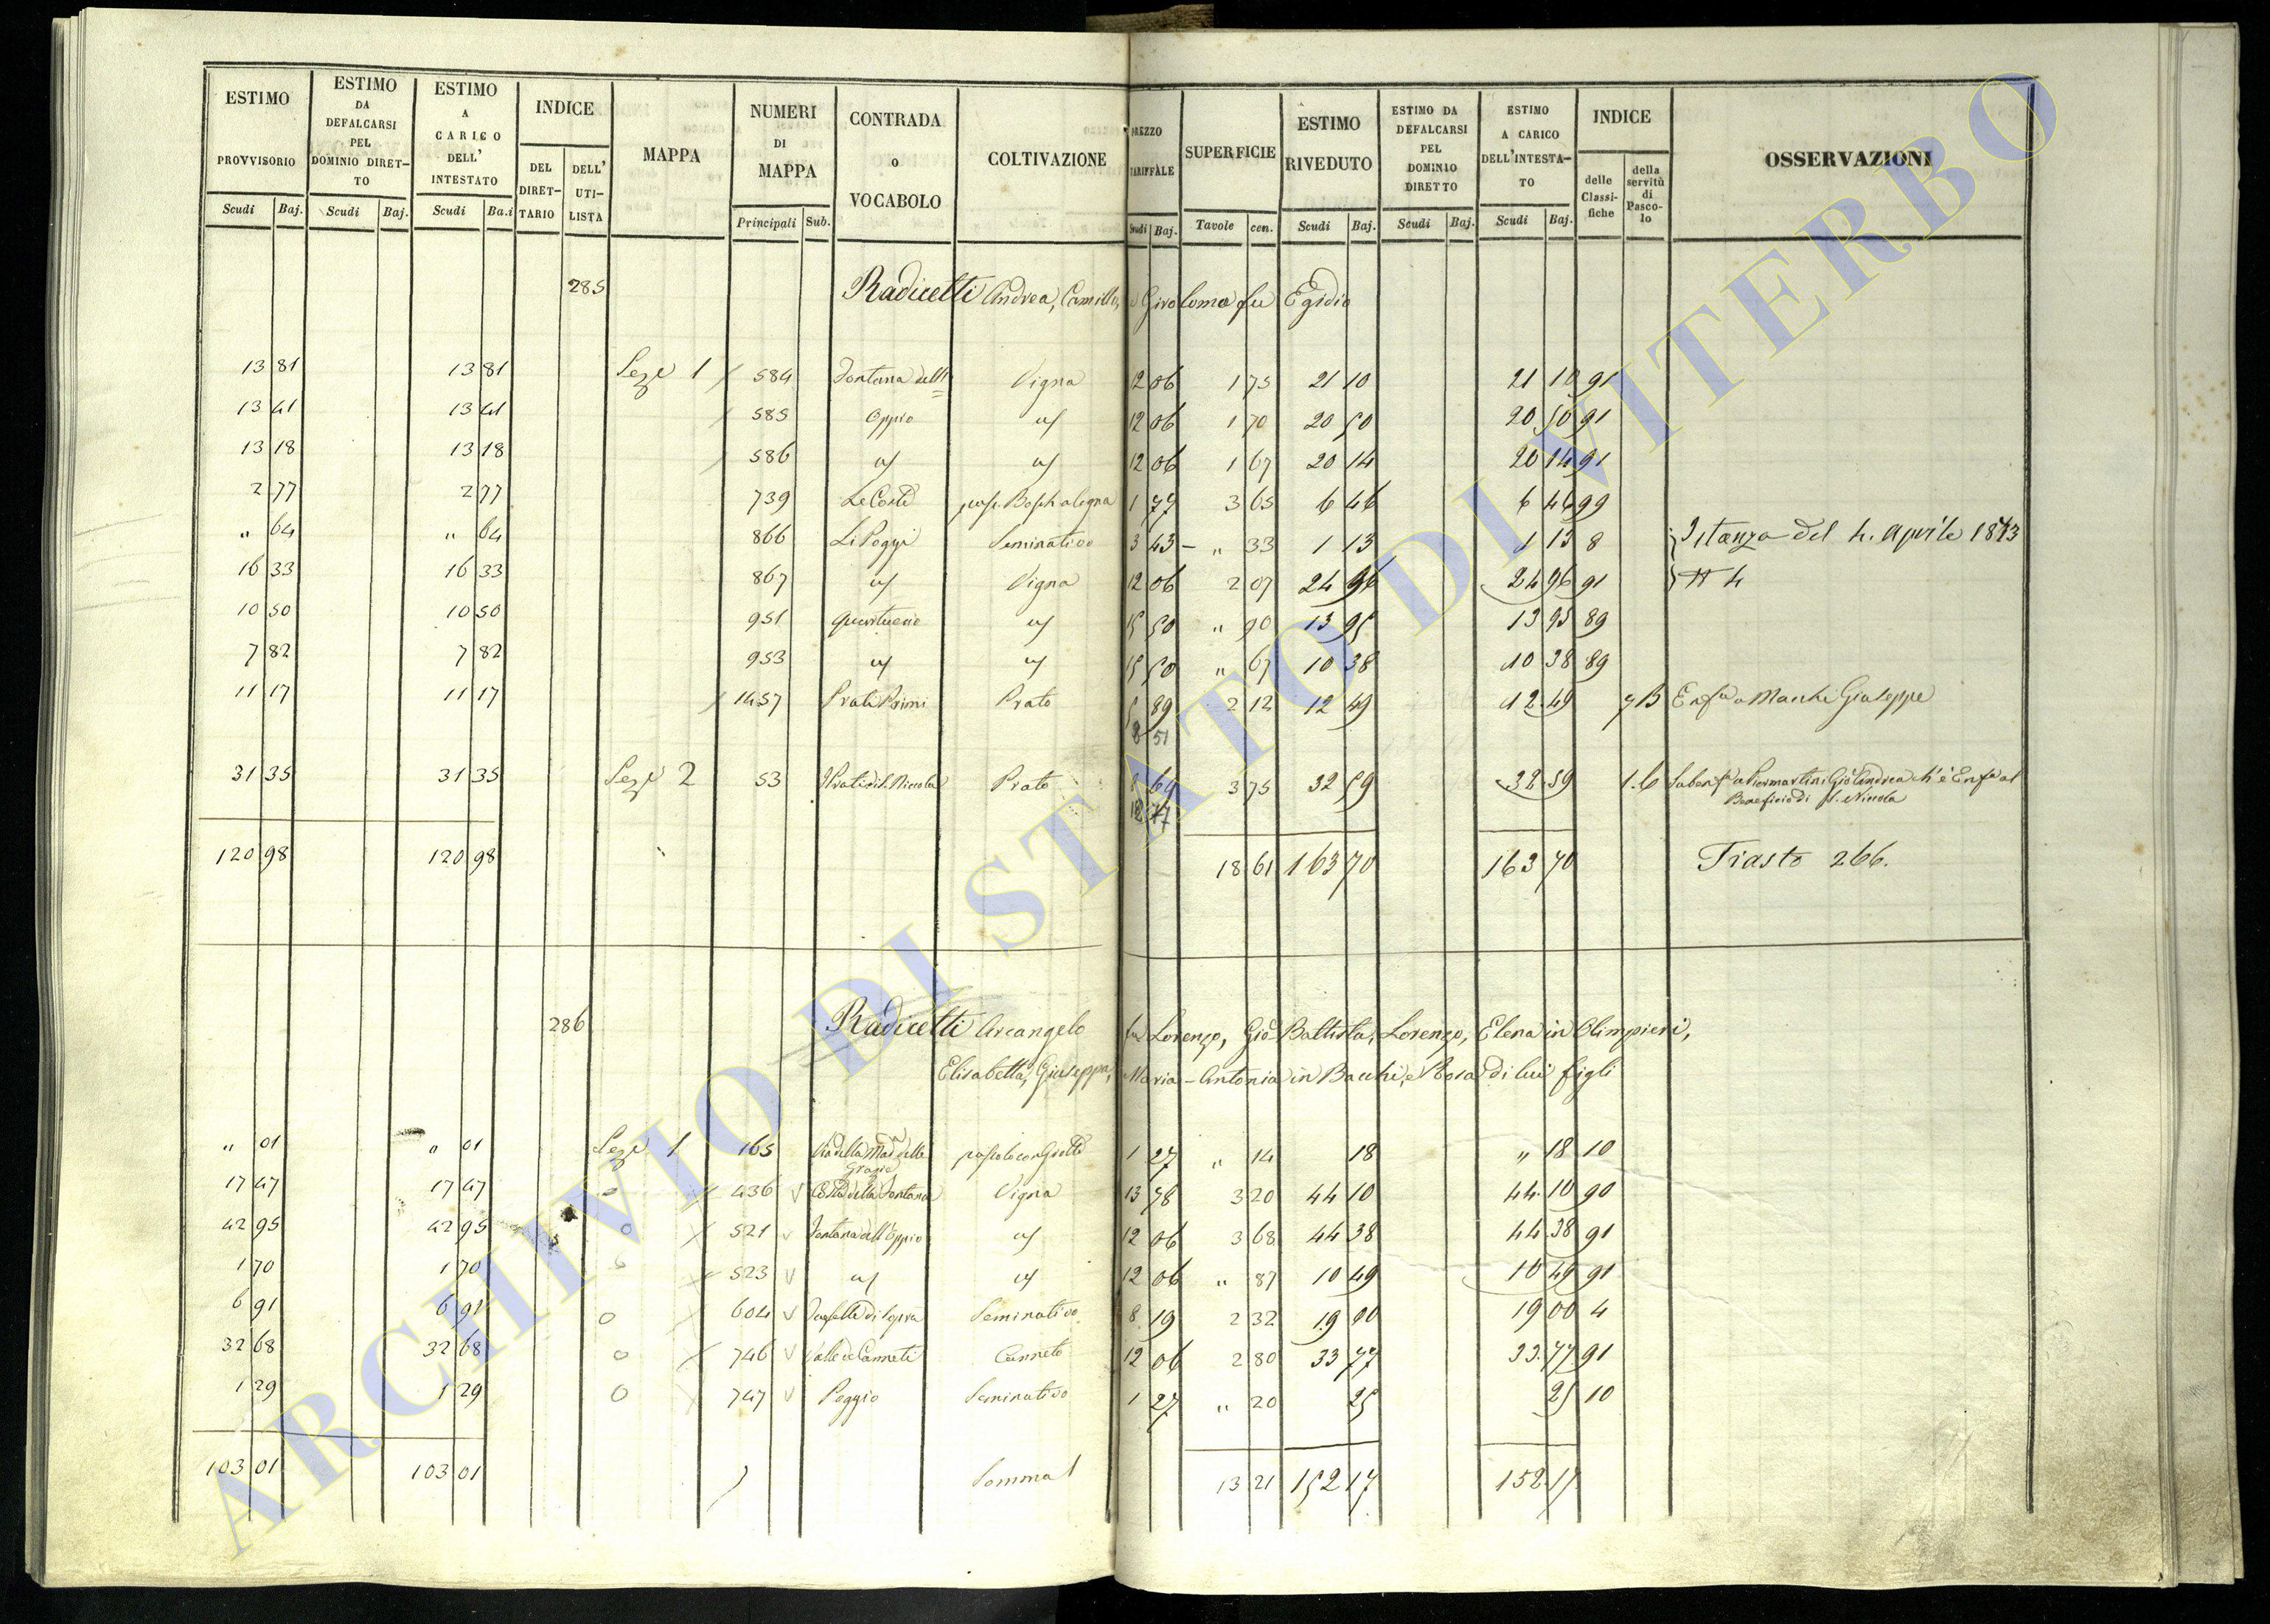 ESTIMO PROVVISORIO Scudi Baj. | ESTIMO DA DEFALCARSI PEL DOMINIO DIRET-TO Scudi Baj. | ESTIMO A CARICO DELL' INTESTATO Scudi Ba.i | INDICE DEL DIRET-TARIO DELL' UTI-LISTA | MAPPA | NUMERI DI MAPPA Principali Sub. | CONTRADA O VOCABOLO | COLTIVAZIONE | PREZZO TARIFFALE Scudi Baj. | SUPERFICIE Tavole cen. | ESTIMO RIVEDUTO Scudi Baj. | ESTIMO DA DEFALCARSI PEL DOMINIO DIRETTO Scudi Baj. | ESTIMO A CARICO DELL'INTESTA-TO Scudi Baj. | INDICE delle Classi-fiche della servitù di Pasco-lo | OSSERVAZIONI
285 Radicetti Andrea, Camillo, e Girolomo fu Egidio
13 81 13 81 Seze 1 584 Fontana dell' Vigna 12 06 1 75 21 10 21 10 91
13 41 13 41 585 Oppio " 12 06 1 70 20 50 20 50 91
13 18 13 18 586 " " 12 06 1 67 20 14 20 14 91
2 77 2 77 739 Le Coste 1 77 3 65 6 46 6 46 99
" 64 " 64 866 Li Poggi Seminativo 3 43 " 33 1 13 1 13 8 Istanza del 4. Aprile 1843
16 33 16 33 867 " Vigna 12 06 2 07 24 96 24 96 91 N 4
10 50 10 50 951 " 15 50 " 90 13 95 13 95 89
7 82 7 82 953 " " 15 50 " 67 10 38 10 38 89
11 17 11 17 1457 Prati Primi Prato 5 89 2 12 12 49 12 49 7 B Enf.a a Macchi Giuseppe
8 51
31 35 31 35 Seze 2 53 I Prati di S. Niccola Prato 8 69 3 75 32 59 32 59 1.6 Piermartini Gio Andrea Enf.a al
12 77 Beneficio di S. Nicola
120 98 120 98 18 61 163 70 163 70 Trasto 266.
286 Radicetti Arcangelo fu Lorenzo, Gio Battista, Lorenzo, Elena in Olimpieri,
Elisabetta, Giuseppa, Maria-Antonia in Bacchi, e Rosa di lui figli
" 01 " 01 Seze 1 165 Via della Mad. delle Grazie pascolo con Grotta 1 27 " 14 18 " 18 10
17 47 17 47 436 Costa della Fontana Vigna 13 78 3 20 44 10 44 10 90
42 95 42 95 521 Fontana dell'Oppio " 12 06 3 68 44 38 44 38 91
1 70 1 70 523 " " 12 06 " 87 10 49 10 49 91
6 91 6 91 604 di sopra Seminativo 8 19 2 32 19 00 19 00 4
32 68 32 68 746 Valle de Canneti Canneto 12 06 2 80 33 77 33 77 91
1 29 1 29 747 Poggio Seminativo 1 27 " 20 25 25 10
103 01 103 01 Somma 13 21 152 17 152 17
ARCHIVIO DI STATO DI VITERBO